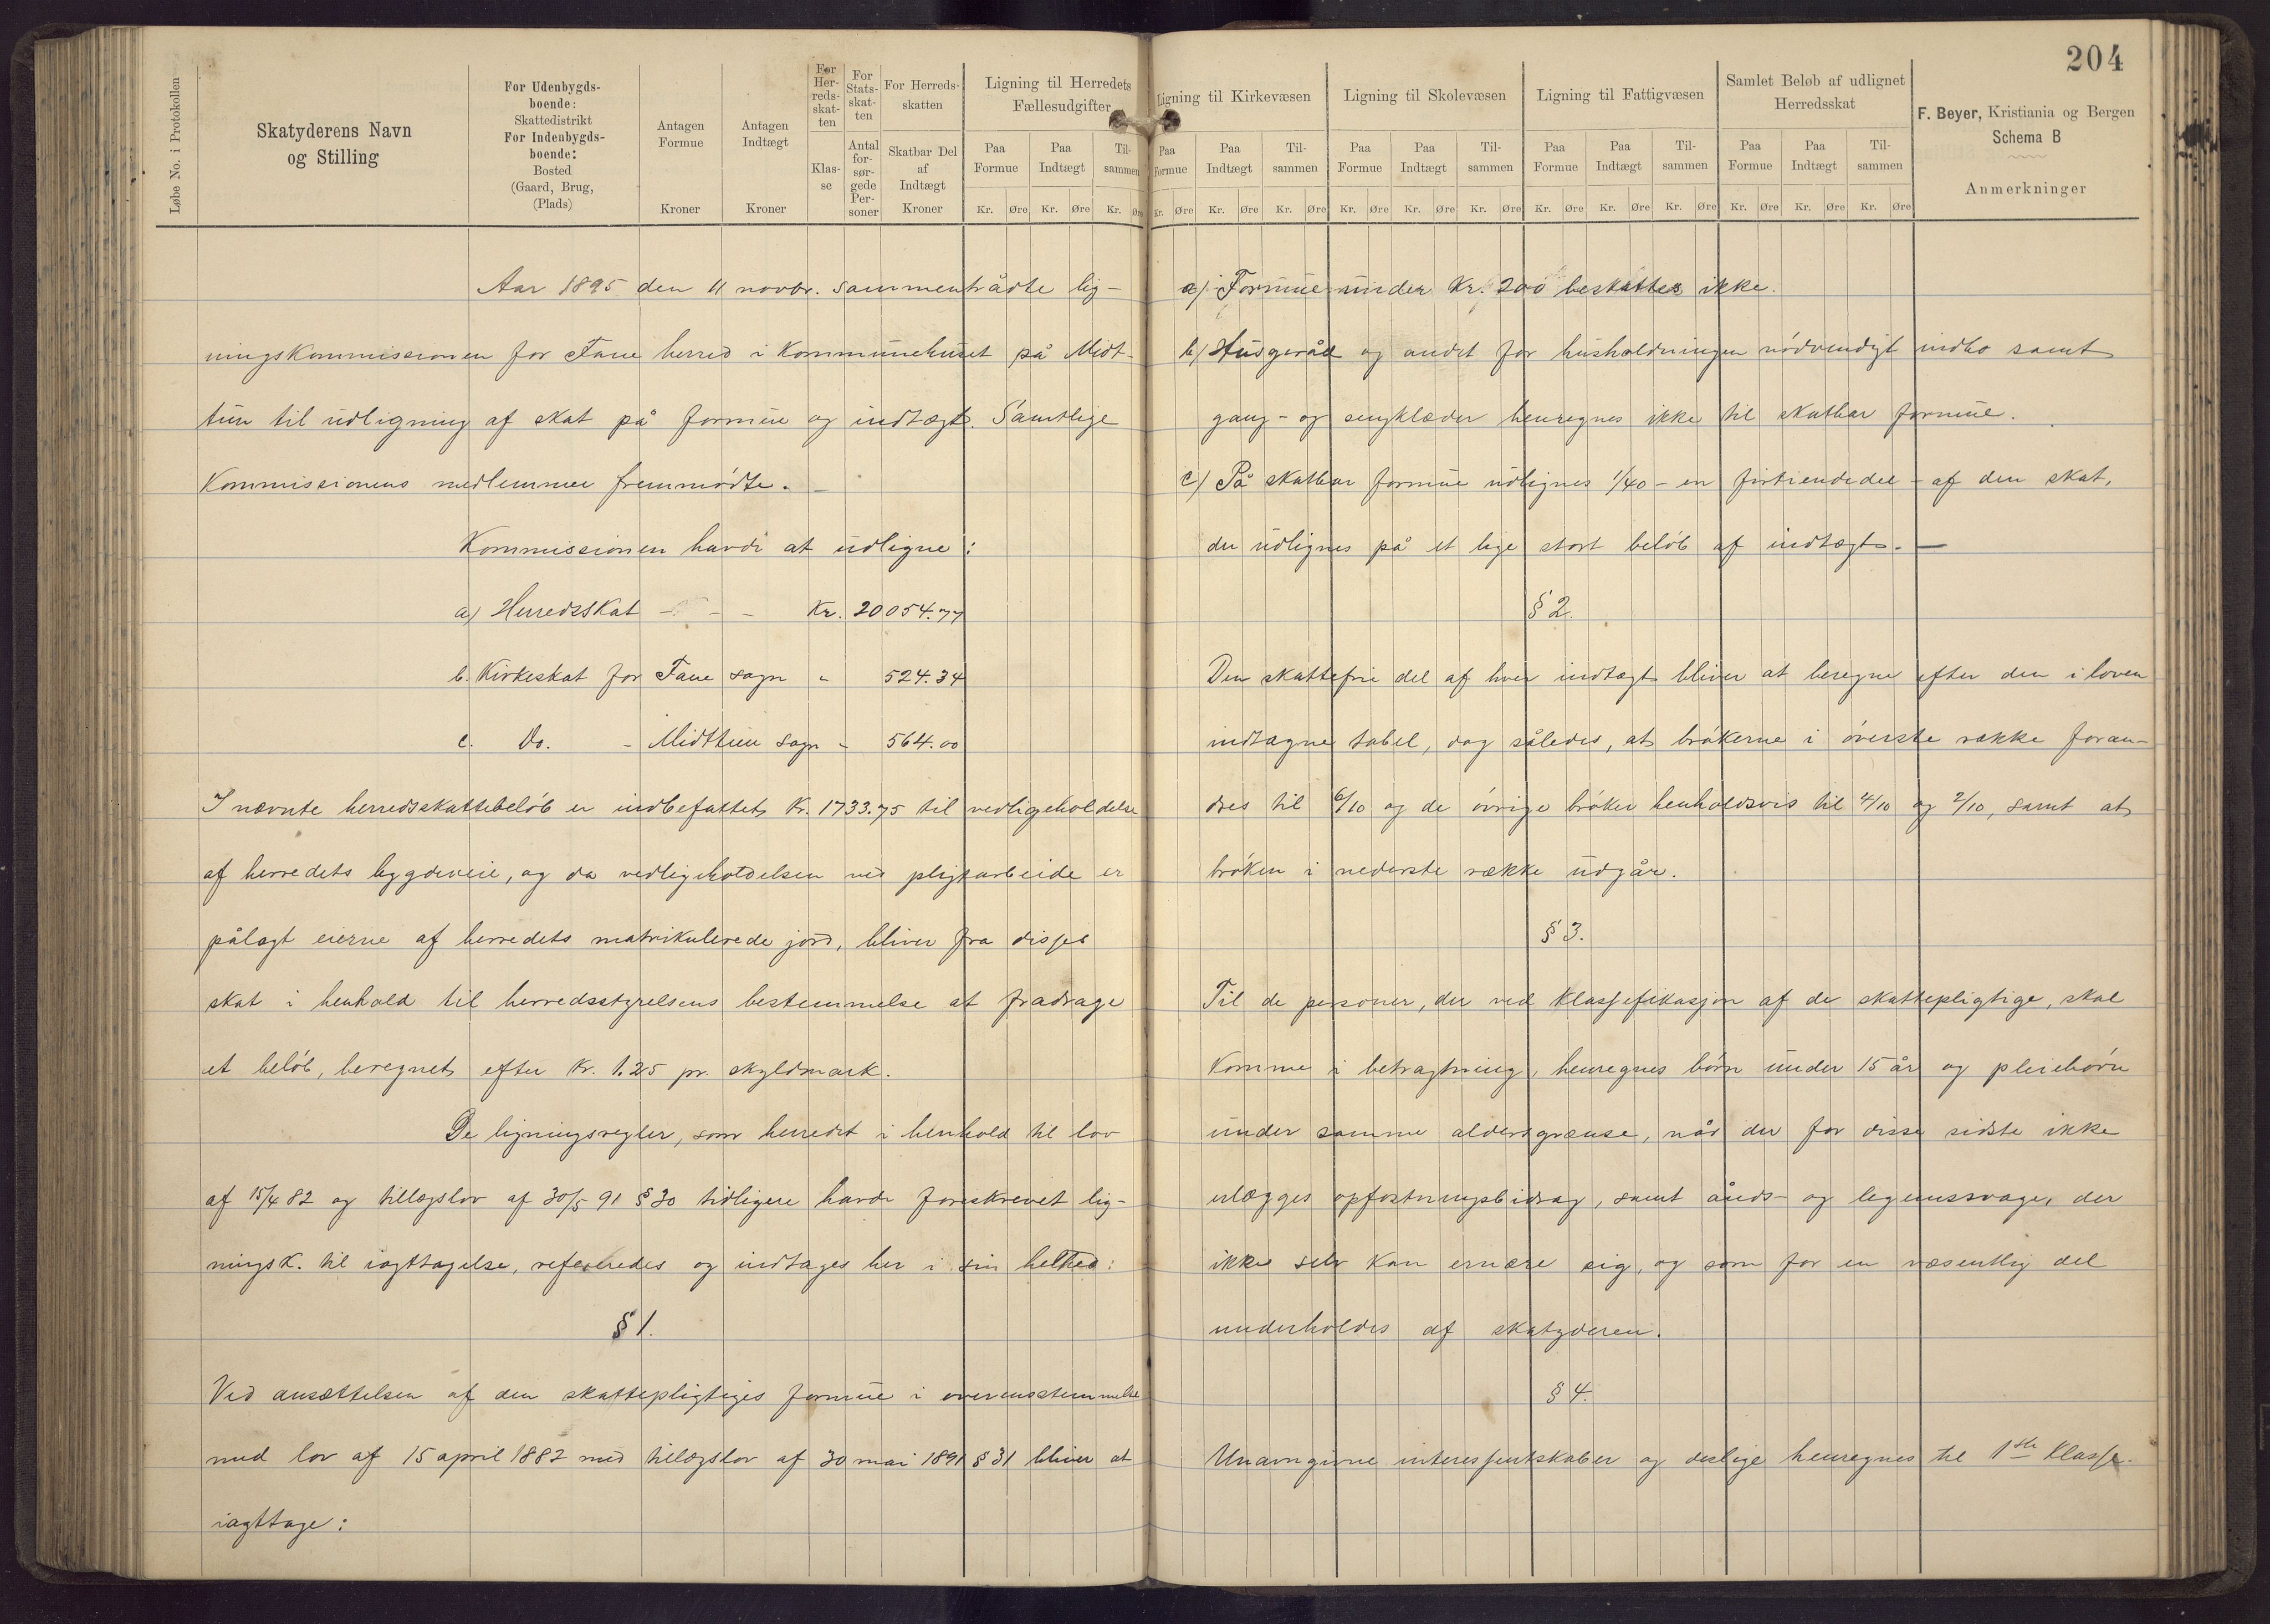 204
Løbe No. i Protokollen
Skatyderens Navn
og Stilling
For Udenbygds-
boende:
Skattedistrikt
For Indenbygds-
boende:
Bosted
(Gaard, Brug,
(Plads)
Antagen
Formue
Kroner
Antagen
Indtægt
Kroner
For
Her-
reds-
skat-
ten
Klas-
se
For
Stats-
skat-
ten
Antal
for-
sør-
gede
Per-
soner
For Herreds-
skatten
Skatbar Del
af
Indtægt
Kroner
Ligning til Herredets
Fællesudgifter
Paa Formue Paa Indtægt Til- sammen
Kr. Øre Kr. Øre Kr. Øre
Aar 1895 den 11 novbr. sammentrådte lig-
ningskommissionen for Fane herred i kommunehuset på Midt-
tun til udligning af skat på formue og indtægt. Samtlige
kommissionens medlemmer fremmødte. –
Kommissionen havde at udligne:
a) Herredsskat - - - Kr. 20054.77
b. Kirkeskat for Fane sogn " 524.34
c. Do. - Midttun sogn - 564.00
I nævnte herredsskattebeløb er indbefattet Kr. 1733.75 til vedligeholdelse
af herredets bygdeveie, og da vedligeholdelsen ved pligtarbeide er
pålagt eierne af herredets matrikulerede jord, bliver fra disses
skat i henhold til herredsstyrelsens bestemmelse at fradrage
et beløb, beregnet efter Kr. 1.25 pr. skyldmark.
De ligningsregler, som herredet i henhold til lov
af 15/4 82 og tillægslov af 30/5 91 § 30 tidligere havde foreskrevet lig-
ningsk. til iagttagelse, refereredes og indtages her i sin helhed:
§ 1.
Ved ansættelsen af den skattepligtiges formue i overensstemmelse
med lov af 15 april 1882 med tillægslov af 30 mai 1891 § 31 bliver at
iagttage:
Ligning til Kirkevæsen
Paa Formue Paa Indtægt Til- sammen
Kr. Øre Kr. Øre Kr. Øre
Ligning til Skolevæsen
Paa Formue Paa Indtægt Til- sammen
Kr. Øre Kr. Øre Kr. Øre
Ligning til Fattigvæsen
Paa Formue Paa Indtægt Til- sammen
Kr. Øre Kr. Øre Kr. Øre
Samlet Beløb af udlignet
Herredsskat
Paa Formue Paa Indtægt Til- sammen
Kr. Øre Kr. Øre Kr. Øre
F. Beyer, Kristiania og Bergen
Schema B
Anmerkninger
a) Formue under Kr. 200 beskattes ikke.
b) Husgeråd og andet for husholdningen nødvendigt indbo samt
gang- og sengklæder henregnes ikke til skatbar formue.
c) På skatbar formue udlignes 1/40 - en firtiendedel - af den skat,
der udlignes på et lige stort beløb af indtægt. —
§ 2.
Den skattefrie del af hver indtægt bliver at beregne efter den i loven
indtagne tabel, dog således, at brøkerne i øverste række foran-
dres til 6/10 og de øvrige brøker henholdsvis til 4/10 og 2/10, samt at
brøken i nederste række udgår.
§ 3.
Til de personer, der ved klassefikasjon af de skattepligtige, skal
komme i betragtning, henregnes børn under 15 år og pleiebørn
under samme aldersgrænse, når der for disse sidste ikke
erlægges opfostringsbidrag, samt ånds- og legemssvage, der
ikke selv kan ernære sig, og som for en væsentlig del
underholdes af skatyderen.
§ 4.
Unavngivne interessentskaber og deslige henregnes til 1ste klasse.